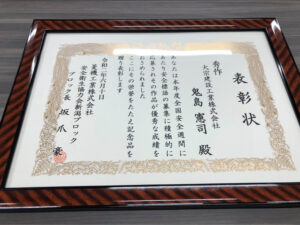 表彰状
秀作
大宗建設工業株式会社
鬼島憲司殿
あなたは本年度全国安全週間に
あたり安全標語の募集に積極的に
応募されその作品が優秀な成績を
おさめられました
ここにその栄誉をたたえ記念品を
贈り表彰します
令和二年六月十日
菱機工業株式会社
安全衛生協力会新潟ブロック
ブロック長 坂爪